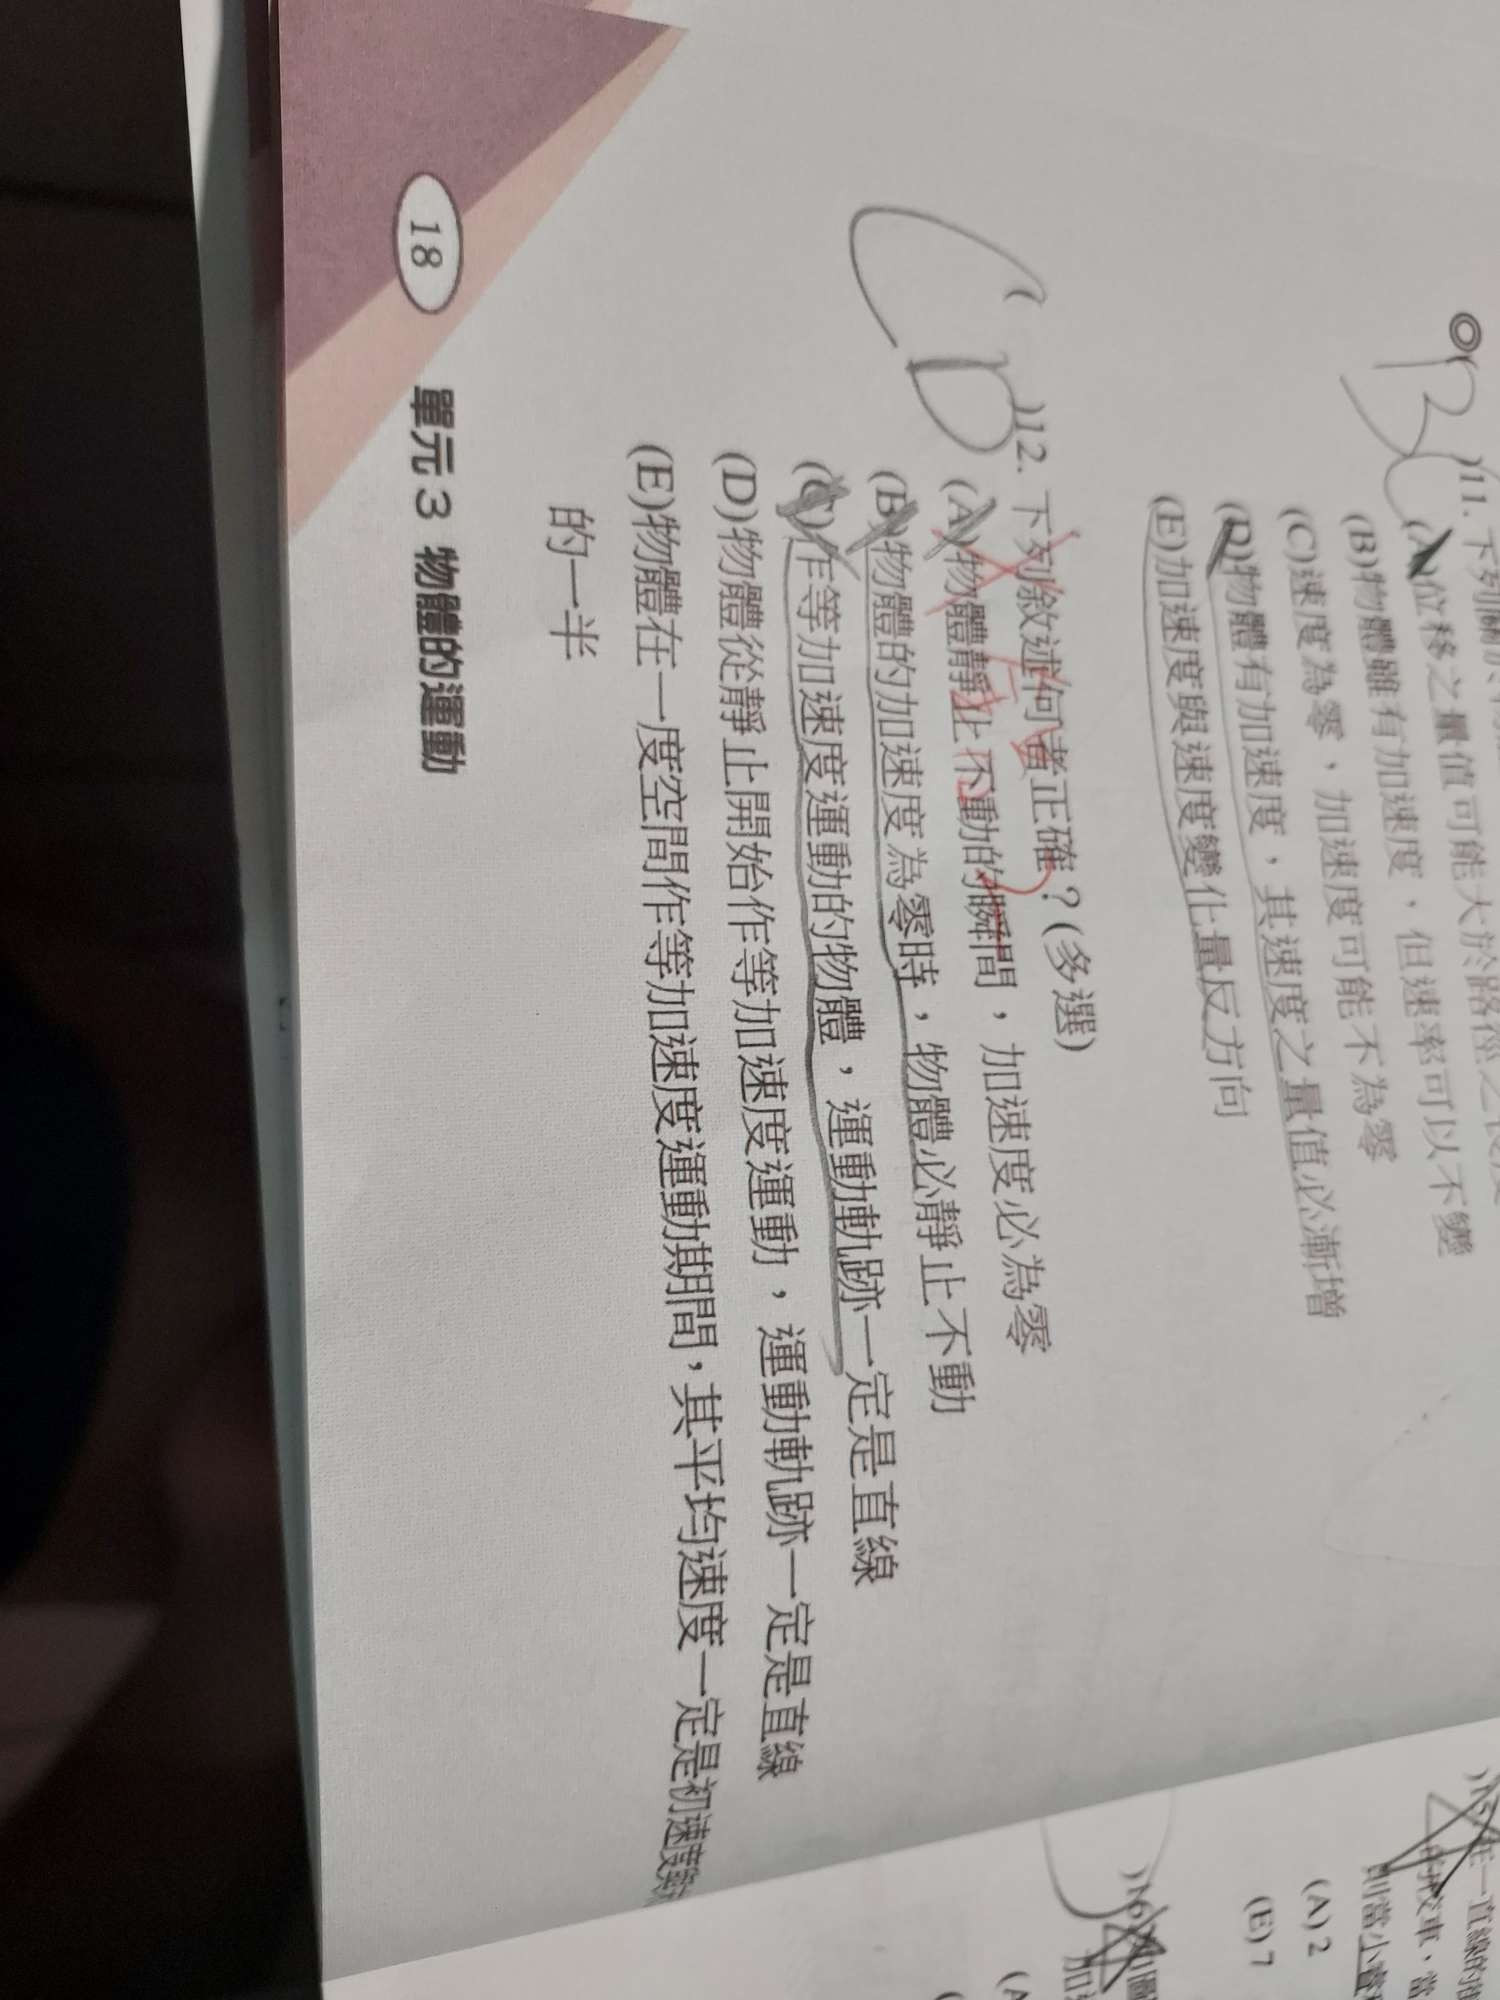 )11. 下列關於
位移之量值可能大於路徑之長度
(B)物體雖有加速度，但速率可以不變
(C)速度為零，加速度可能不為零
(D)物體有加速度，其速度之量值必漸增
(E)加速度與速度變化量反方向
CD
( )12. 下列敘述何者正確？(多選)
(A)物體靜止不動的瞬間，加速度必為零
(B)物體的加速度為零時，物體必靜止不動
(C)作等加速度運動的物體，運動軌跡一定是直線
(D)物體從靜止開始作等加速度運動，運動軌跡一定是直線
(E)物體在一度空間作等加速度運動期間，其平均速度一定是初速度
的一半
18 單元3 物體的運動
)15. 在一直線的
車，當
則當小
(A) 2
(E) 7
)16. 如圖
加
(A